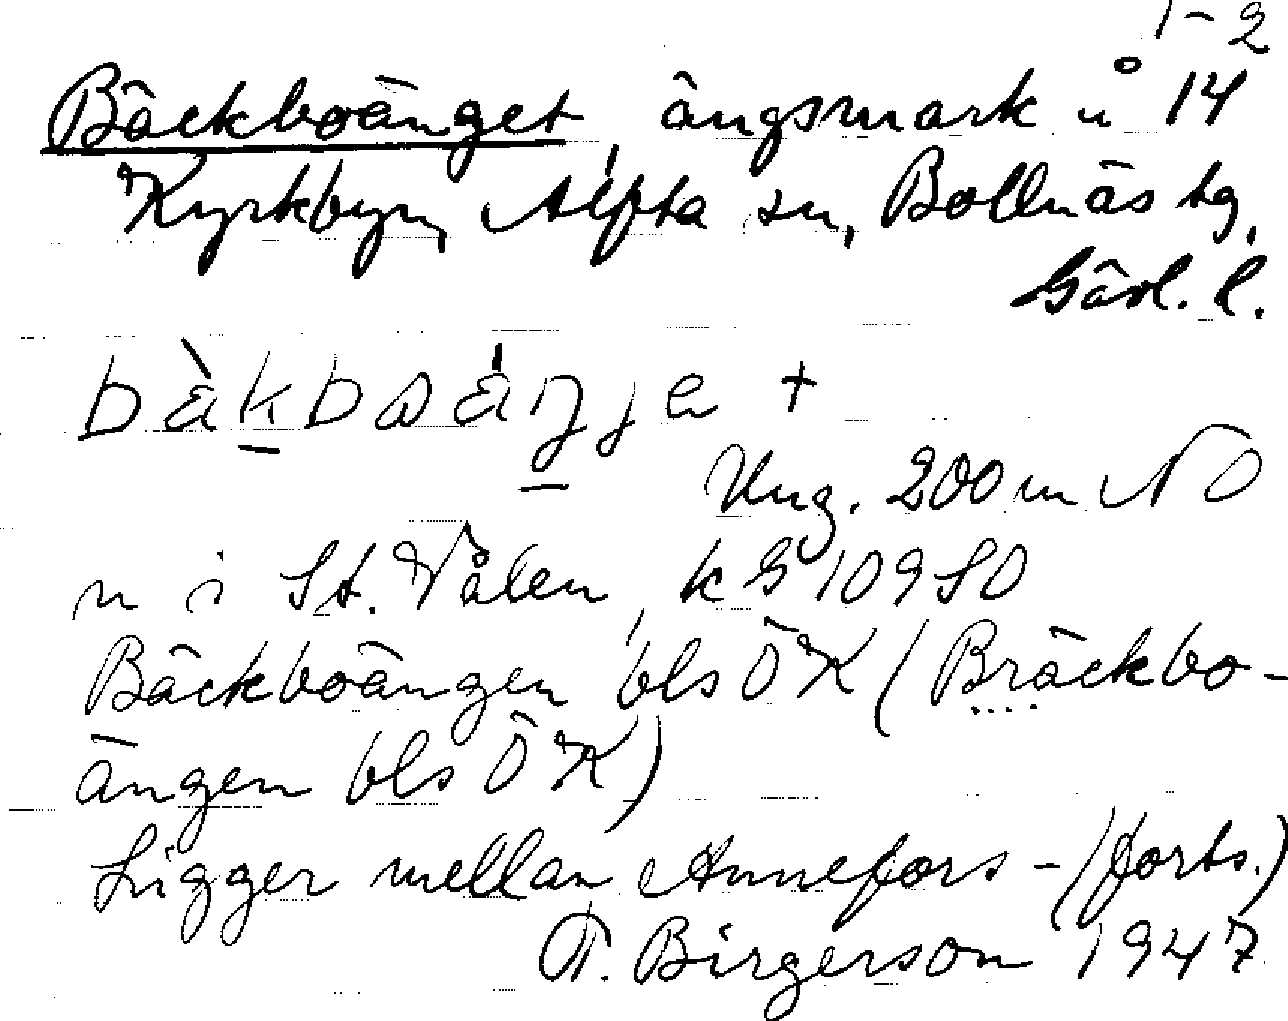 1-2
Bäckboänget, ängsmark å 14
Kyrkbyn, Alfta sn, Bollnäs tg,
Gävl. l.
bàkboáŋje +
Ung. 200 m NO
n i St. Vålen, kG 109 SO
Bäckboängen bls ÖK (Bräckbo-
ängen bls ÖK)
Ligger mellan Annefors - (forts.)
T. Birgerson 1947